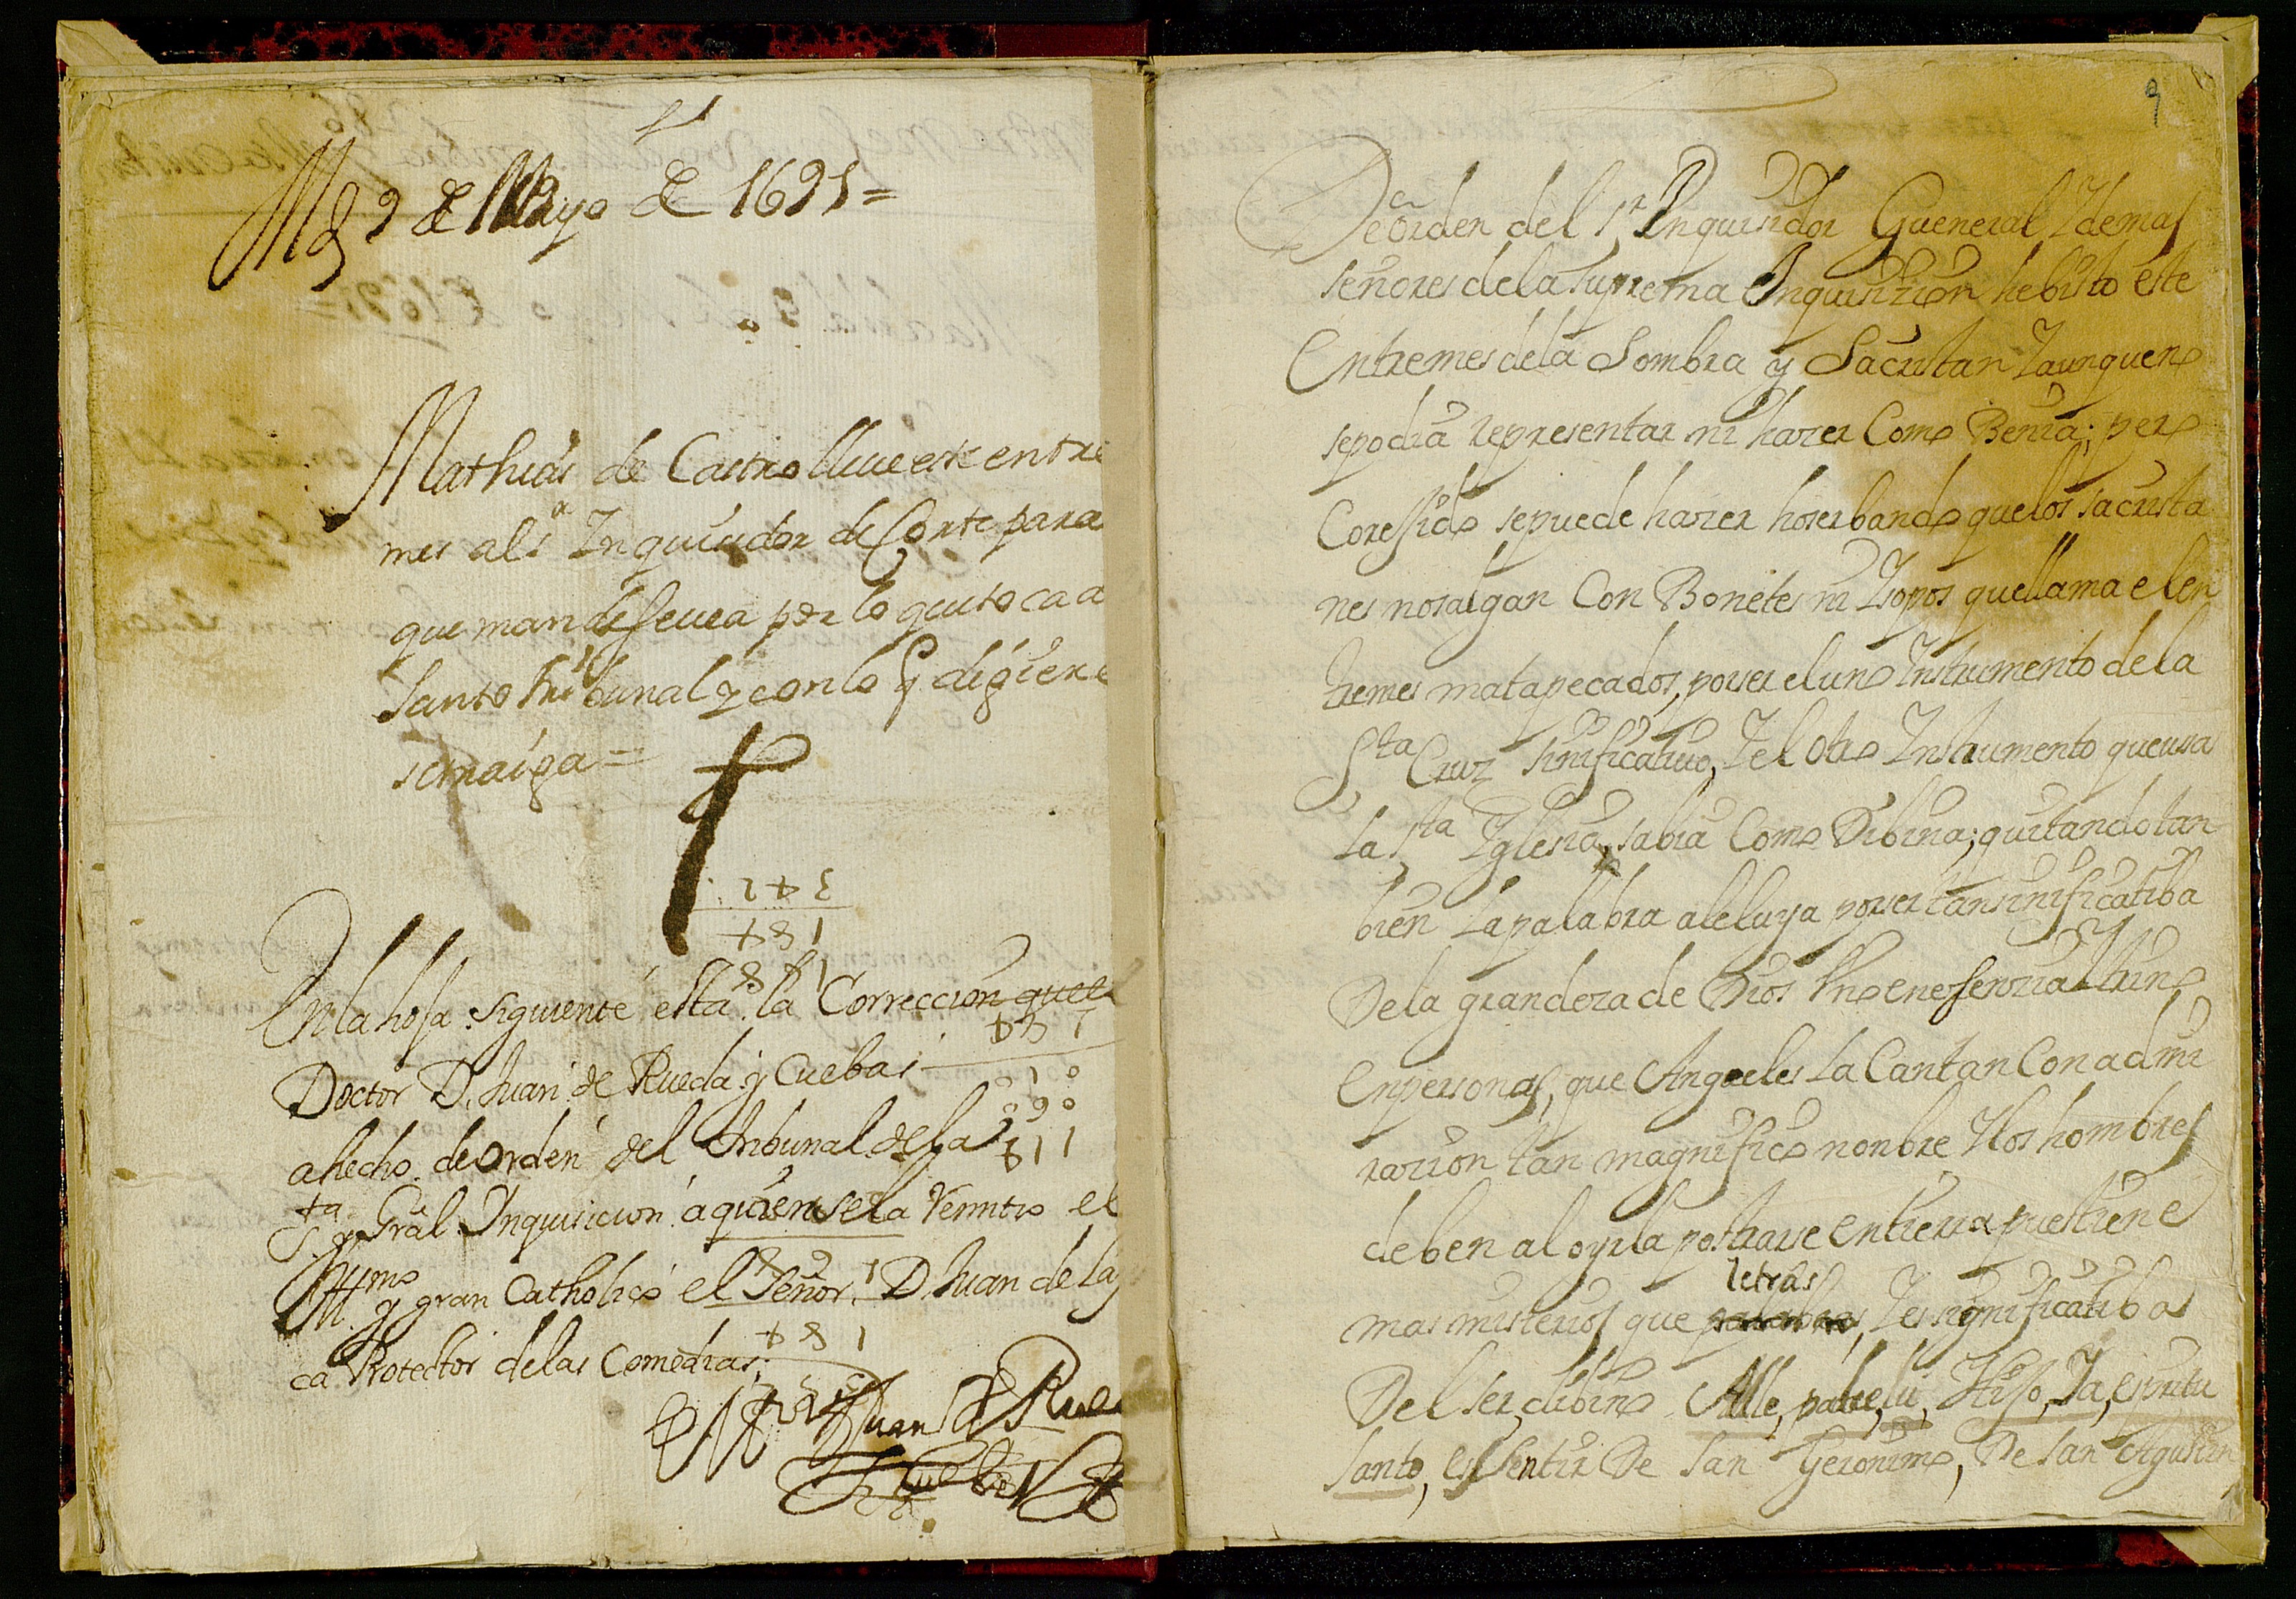 Md 9 de Mayo de 1691=
Mathias de Castro lleue este entre
mes al sr Inquisidor de Corte para
que mande se uea por lo que toca a
Santo tribunal y con lo q digiere
se traiga=
342
184
184
En la hoja siguiente esta la Correccion que el
Doctor D. Juan de Rueda y Cuebas
a hecho de orden del tribunal de la
Sta y Gral Inquisicion a quien se la Remitio el
Illmo y gran Catholico el Señor D. Juan de Lay
ca Protector de las Comedias;
184
Dr Juan de Rue
y Cuebas
9
De orden del Sr Inquisidor Gueneral I demas
señores de la suprema Inquisizion he bisto este
Entremes de la Sombra y Sacristan I aunque no
se podia representar ni hazer Como Benia; pero
Corejido se puede hazer hoserbando que los sacrista
nes no salgan Con Bonetes ni Isopos que llama el en
tremes matapecados, por ser el uno Instrumento de la
Sta Cruz sinificatiuo, I el Otro Instrumento que usa
La sta Iglesia, sabia Como Dibina; quitando tan
bien La palabra aleluya por ser tan sinificatiba
De la grandeza de Dios Vno en esenzia I trino
en personas, que Angeles La Cantan Con admi
razion tan magnifico nonbre I los hombres
deben al oyrla postrarse en tierra pues tiene
letras
mas misterios que palabras, I es significatiba
Del ser dibino Alle, padre, lu, Hijo, Ia, espiritu
santo, es sentir De san Geronimo, De san Agustin